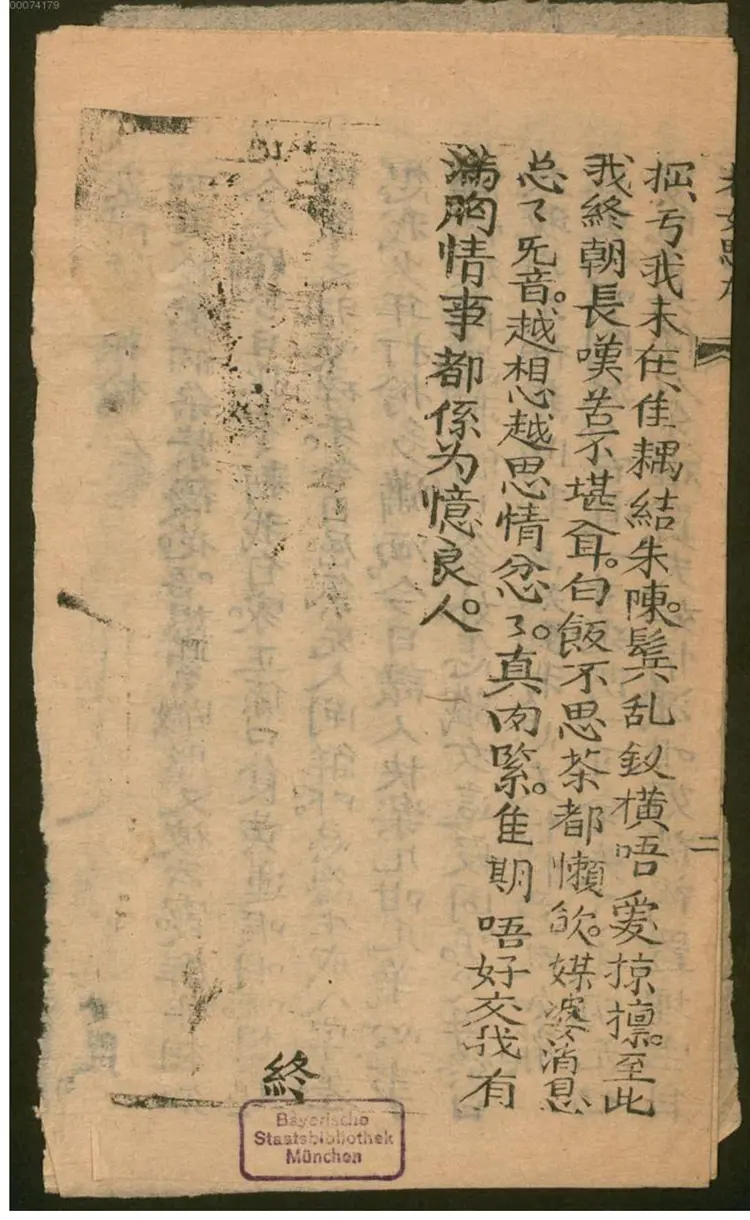 00074179
老女思夫
二
亏我未在隹耦結朱陳。髩乱釵橫唔愛掠㨆。至此
我終朝長嘆苦不堪耳。白飯不思茶都懶飲。媒婆消息
总〻旡音。越想越思情忿了。真肉緊。隹期唔好交我有
满胸情事都係为憶良人。
終
Bayerische
Staatsbibliothek
München